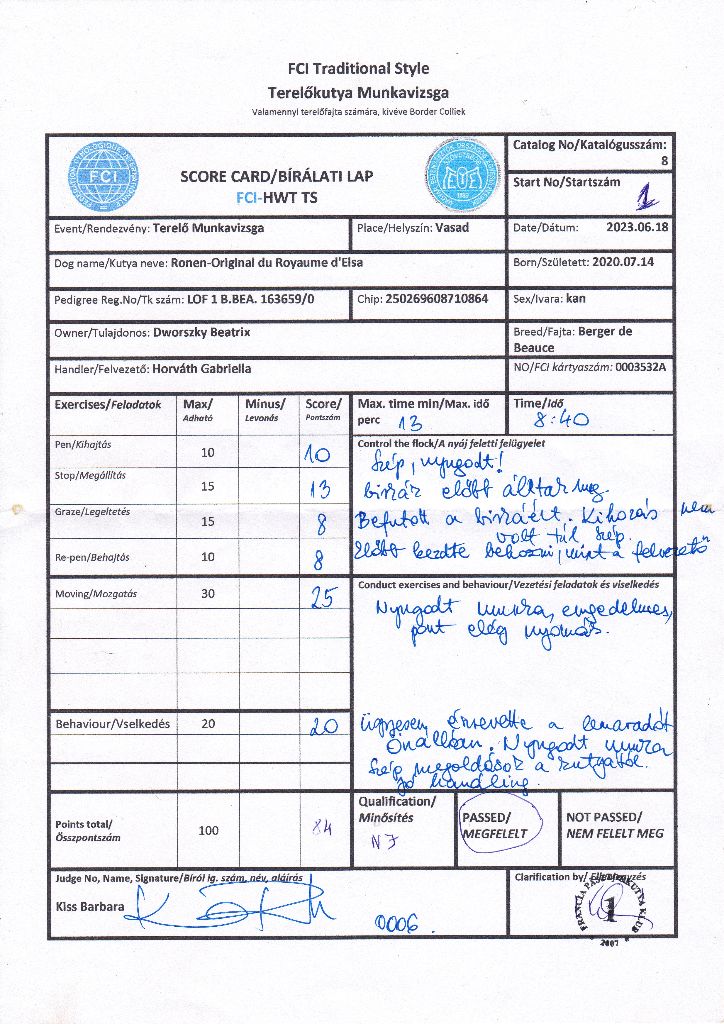 FCI Traditional Style
Terelőkutya Munkavizsga
Valamennyi terelőfajta számára, kivéve Border Colliek
FCI
SCORE CARD/BÍRÁLATI LAP
FCI-HWT TS
Catalog No/Katalógusszám:
8
Start No/Startszám
1
Event/Rendezvény: Terelő Munkavizsga
Place/Helyszín: Vasad
Date/Dátum: 2023.06.18
Dog name/Kutya neve: Ronen-Original du Royaume d'Elsa
Born/Született: 2020.07.14
Pedigree Reg.No/Tk szám: LOF 1 B.BEA. 163659/0
Chip: 250269608710864
Sex/Ivara: kan
Owner/Tulajdonos: Dworszky Beatrix
Breed/Fajta: Berger de
Beauce
Handler/Felvezető: Horváth Gabriella
NO/FCI kártyaszám: 0003532A
Exercises/Feladatok
Max/
Adható
Mínus/
Levonás
Score/
Pontszám
Max. time min/Max. idő
perc 13
Time/Idő
8:40
Pen/Kihajtás 10 10
Control the flock/A nyáj feletti felügyelet
Szép, nyugodt!
Stop/Megállítás 15 13
birkák előtt álltak meg.
Graze/Legeltetés 15 8
Befutott a birkáért. Kihozás nem
volt túl szép.
Re-pen/Behajtás 10 8
Előbb kezdte behozni, mint a felvezető
Moving/Mozgatás 30 25
Conduct exercises and behaviour/Vezetési feladatok és viselkedés
Nyugodt munka, engedelmes,
pont elég nyomás.
Behaviour/Vselkedés 20 20
ügyesen észrevette a lemaradót
Önállóan. Nyugodt munka
Szép megoldások a kutyától.
Jó handling.
Points total/
Összpontszám
100
84
Qualification/
Minősítés
NJ
PASSED/
MEGFELELT
NOT PASSED/
NEM FELELT MEG
Judge No, Name, Signature/Bíról ig. szám, név, aláírás
Kiss Barbara
0006.
Clarification by/ Ellenjegyzés
FRANCIA PÁSZTORKUTYA KLUB
1
2007